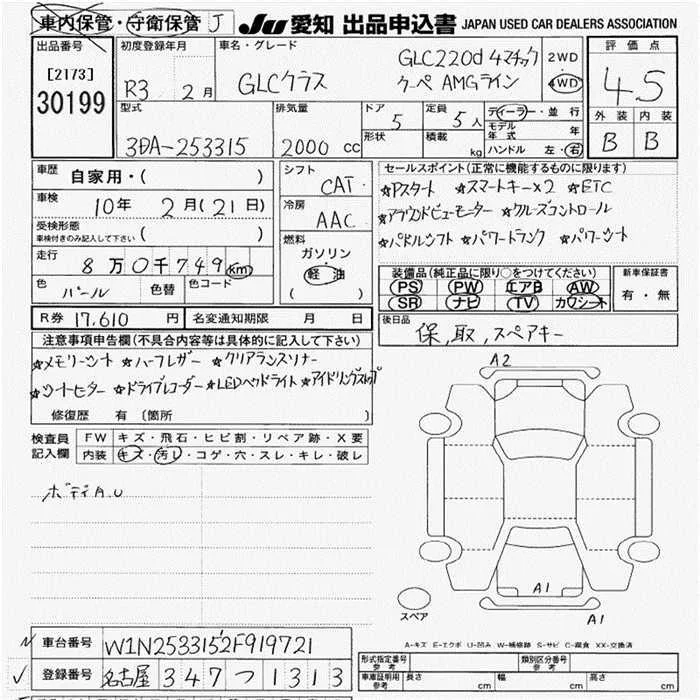 車内保管・守衛保管 J JU 愛知 出品申込書 JAPAN USED CAR DEALERS ASSOCIATION
出品番号
[2173]
30199
初度登録年月
R3 2月
車名・グレード
GLCクラス
GLC220d 4マチック
クーペ AMGライン
2WD
4WD
評価点
4.5
外装 内装
B B
型式
3DA-253315
排気量
2000 cc
ドア
5
形状
定員
5人
積載
kg
ディーラー・並行
モデル年式 年
ハンドル 左・右
車歴
自家用・( )
車検
10年 2月(21日)
受検形態
車検付きのみ記入して下さい ( )
走行
8万0千749km
色
パール
色替
色コード
シフト
CAT
冷房
AAC
燃料
ガソリン
軽油
( )
セールスポイント(正常に機能するものに限ります)
☆Pスタート ☆スマートキー×2 ☆ETC
☆アラウンドビューモニター ☆クルーズコントロール
☆パドルシフト ☆パワートランク ☆パワーシート
装備品(純正品に限り○をつけてください)
PS PW エアB AW
SR ナビ TV カワシート
新車保証書
有・無
R券 17,610 円 名変通知期限 月 日
後日品
保,取,スペアキー
注意事項申告欄(不具合内容等は具体的に記入して下さい)
☆メモリーシート ☆ハーフレザー ☆クリアランスソナー
☆シートヒーター ☆ドライブレコーダー ☆LEDヘッドライト ☆アイドリングストップ
修復歴 有 〔箇所 〕
検査員記入欄
FW キズ・飛石・ヒビ割・リペア跡・X要
内装 キズ・汚レ・コゲ・穴・スレ・キレ・破レ
ボディA.U
A2
A1
A1
スペア
A-キズ E-エクボ U-凹み W-補修跡 S-サビ C-腐食 XX-交換済
車台番号 W1N2533152F919721
登録番号 名古屋 347 つ 1313
形式指定番号 参考
類別区分番号 参考
車庫証明用 参考 長さ cm 幅 cm 高さ cm